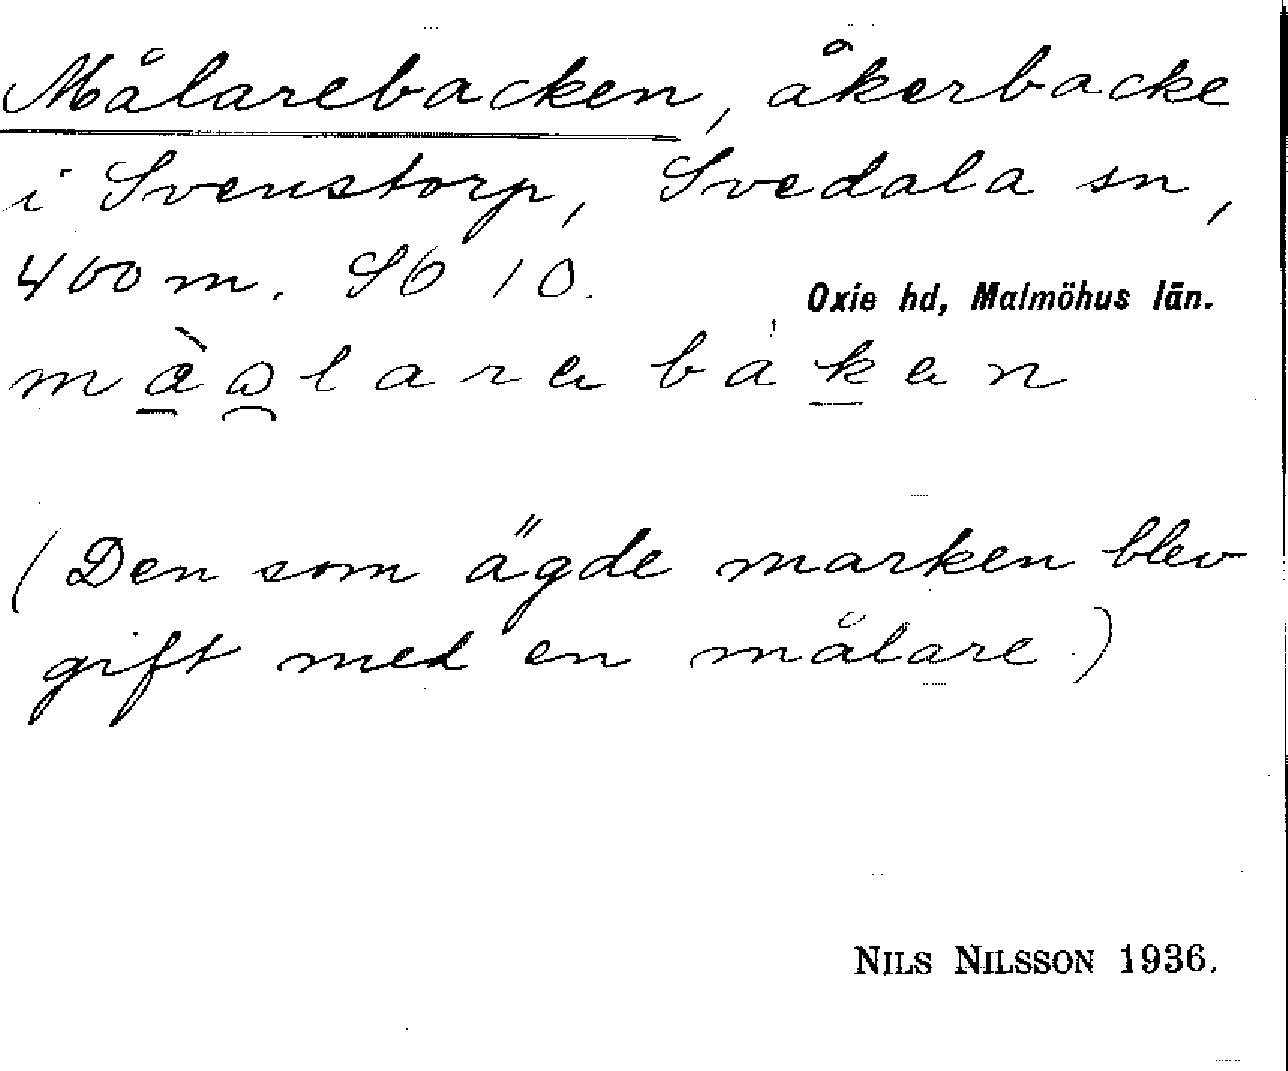 Målarebacken, åkerbacke
i Svenstorp, Svedala sn,
400 m. SO 10.
Oxie hd, Malmöhus län.
(Den som ägde marken blev
gift med en målare.)
NILS NILSSON 1936.